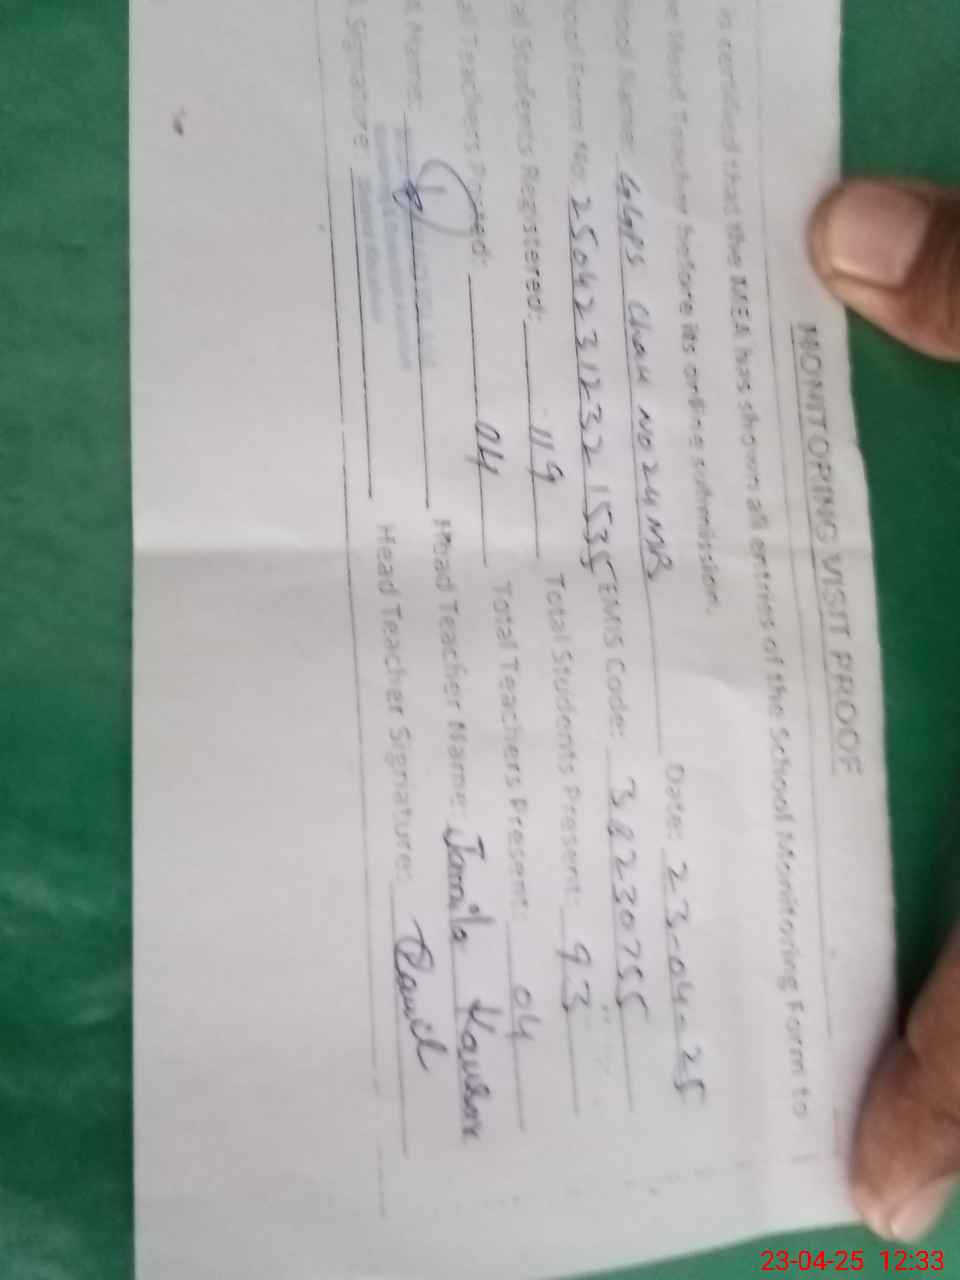 MONITORING VISIT PROOF
is certified that the MEA has shown all entries of the School Monitoring Form to
e Head Teacher before its online submission.
ool Name: GGPS Chak No 24 MB Date: 23-04-25
ool Form No: 25042312321535 EMIS Code: 38230755
al Students Registered: 119 Total Students Present: 93
al Teachers Posted: 04 Total Teachers Present: 04
Name: Head Teacher Name: Jamila Kausar
Signature: Head Teacher Signature:
23-04-25 12:33